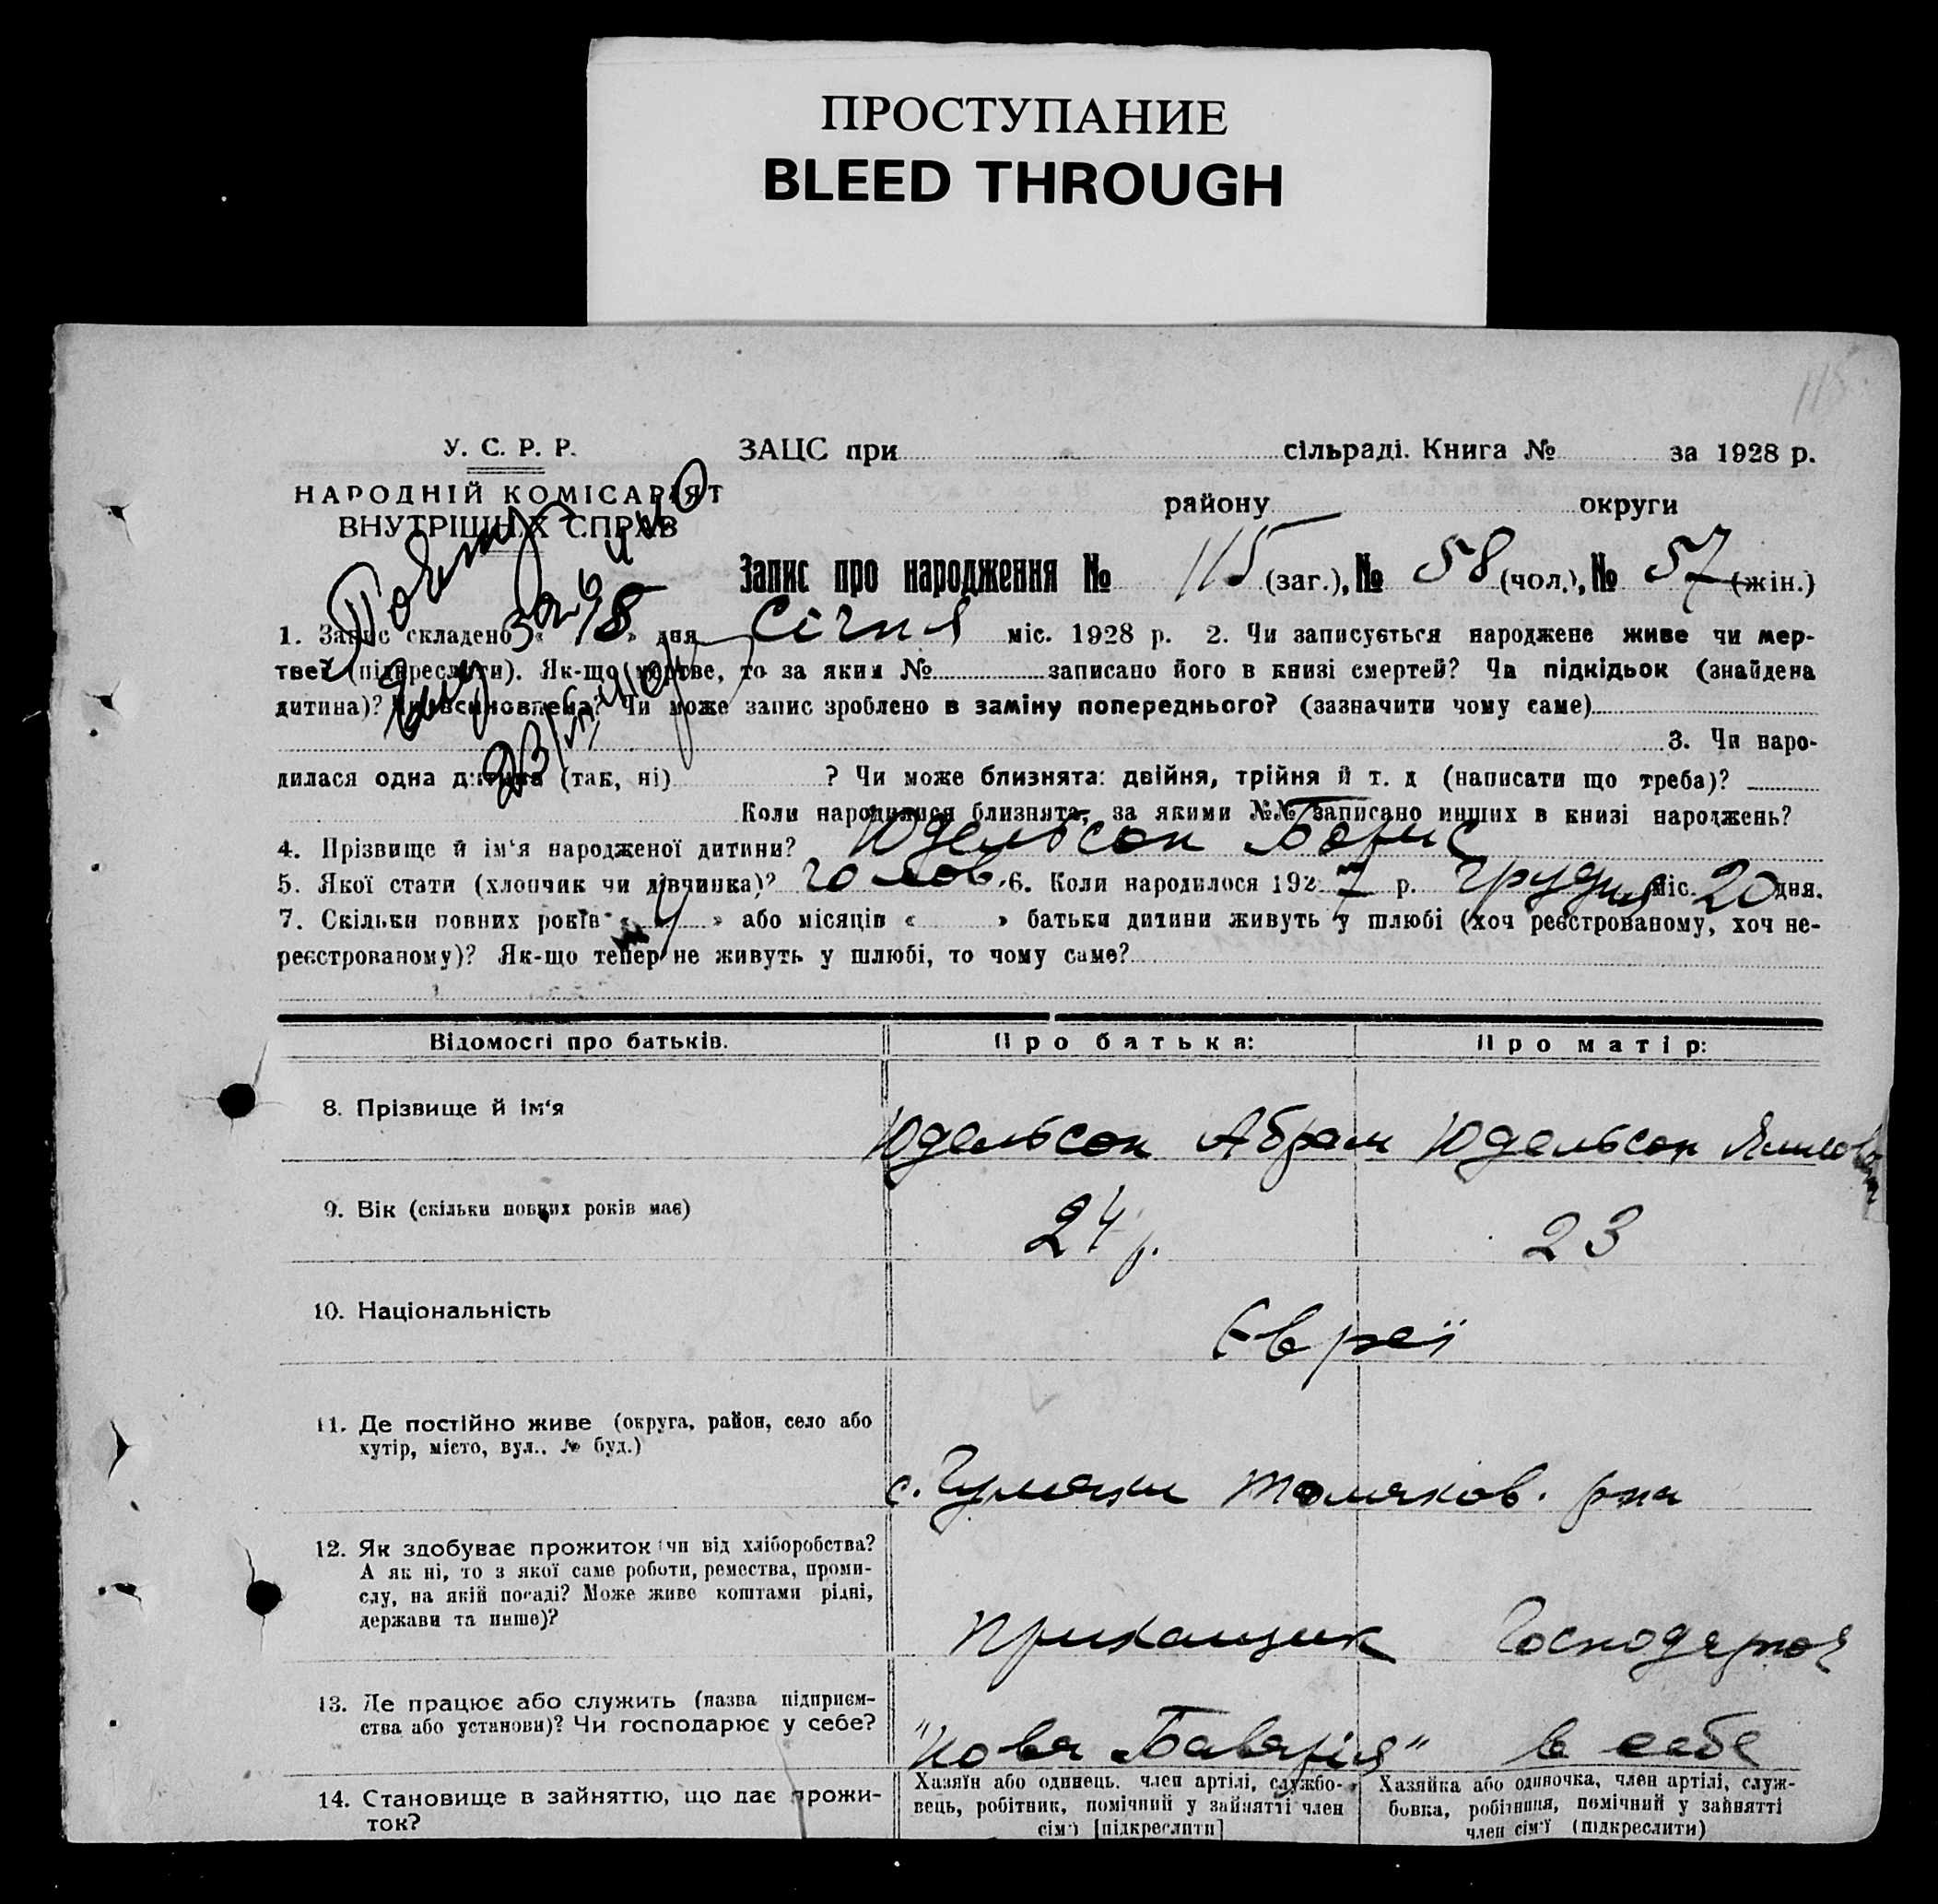 ПРОСТУПАНИЕ
BLEED THROUGH
115
У. С. Р. Р.
НАРОДНІЙ КОМІСАРІЯТ
ВНУТРІШНІХ СПРАВ
ЗАЦС при сільраді. Книга № за 1928 р.
району округи
Запис про народження № 115 (заг.), № 58 (чол.), № 57 (жін.)
1. Запис складено « 18 » дня Січня міс. 1928 р. 2. Чи записується народжене живе чи мер-
тве? (підкреслити). Як-що мертве, то за яким № записано його в книзі смертей? Чи підкідьок (знайдена
дитина)? Чи всиновлена? Чи може запис зроблено в заміну попереднього? (зазначити чому саме)
3. Чи наро-
дилася одна дитина (так, ні) ? Чи може близнята: двійня, трійня й т. д (написати що треба)?
Коли народилися близнята, за якими №№ записано инших в книзі народжень?
4. Прізвище й ім‘я народженої дитини? Юдельсон Борис
5. Якої стати (хлопчик чи дівчинка)? 6. Коли народилося 1927 р. Грудня міс. 20 дня.
7. Скільки повних років « » або місяців « » батьки дитини живуть у шлюбі (хоч реєстрованому, хоч не-
реєстрованому)? Як-що тепер не живуть у шлюбі, то чому саме?
Відомості про батьків. Про батька: Про матір:
8. Прізвище й ім‘я Юдельсон Абрам Юдельсон
9. Вік (скільки повних років має) 24 р. 23
10. Національність Євреї
11. Де постійно живе (округа, район, село або
хутір, місто, вул., № буд.)
с. Чумаки Томаков. р-на
12. Як здобуває прожиток (чи від хліборобства?
А як ні, то з якої саме роботи, ремества, проми-
слу, на якій посаді? Може живе коштами рідні,
держави та инше)?
Приказщик Господарює
13. Де працює або служить (назва підприєм-
ства або установи)? Чи господарює у себе?
"Нова Баварія" в себе
14. Становище в зайняттю, що дає прожи-
ток?
Хазяїн або одинець, член артілі, службо-
вець, робітник, помічний у зайнятті член
сім‘ї [підкреслити]
Хазяйка або одиночка, член артілі, служ-
бовка, робітниця, помічний у зайнятті
член сім‘ї (підкреслити)